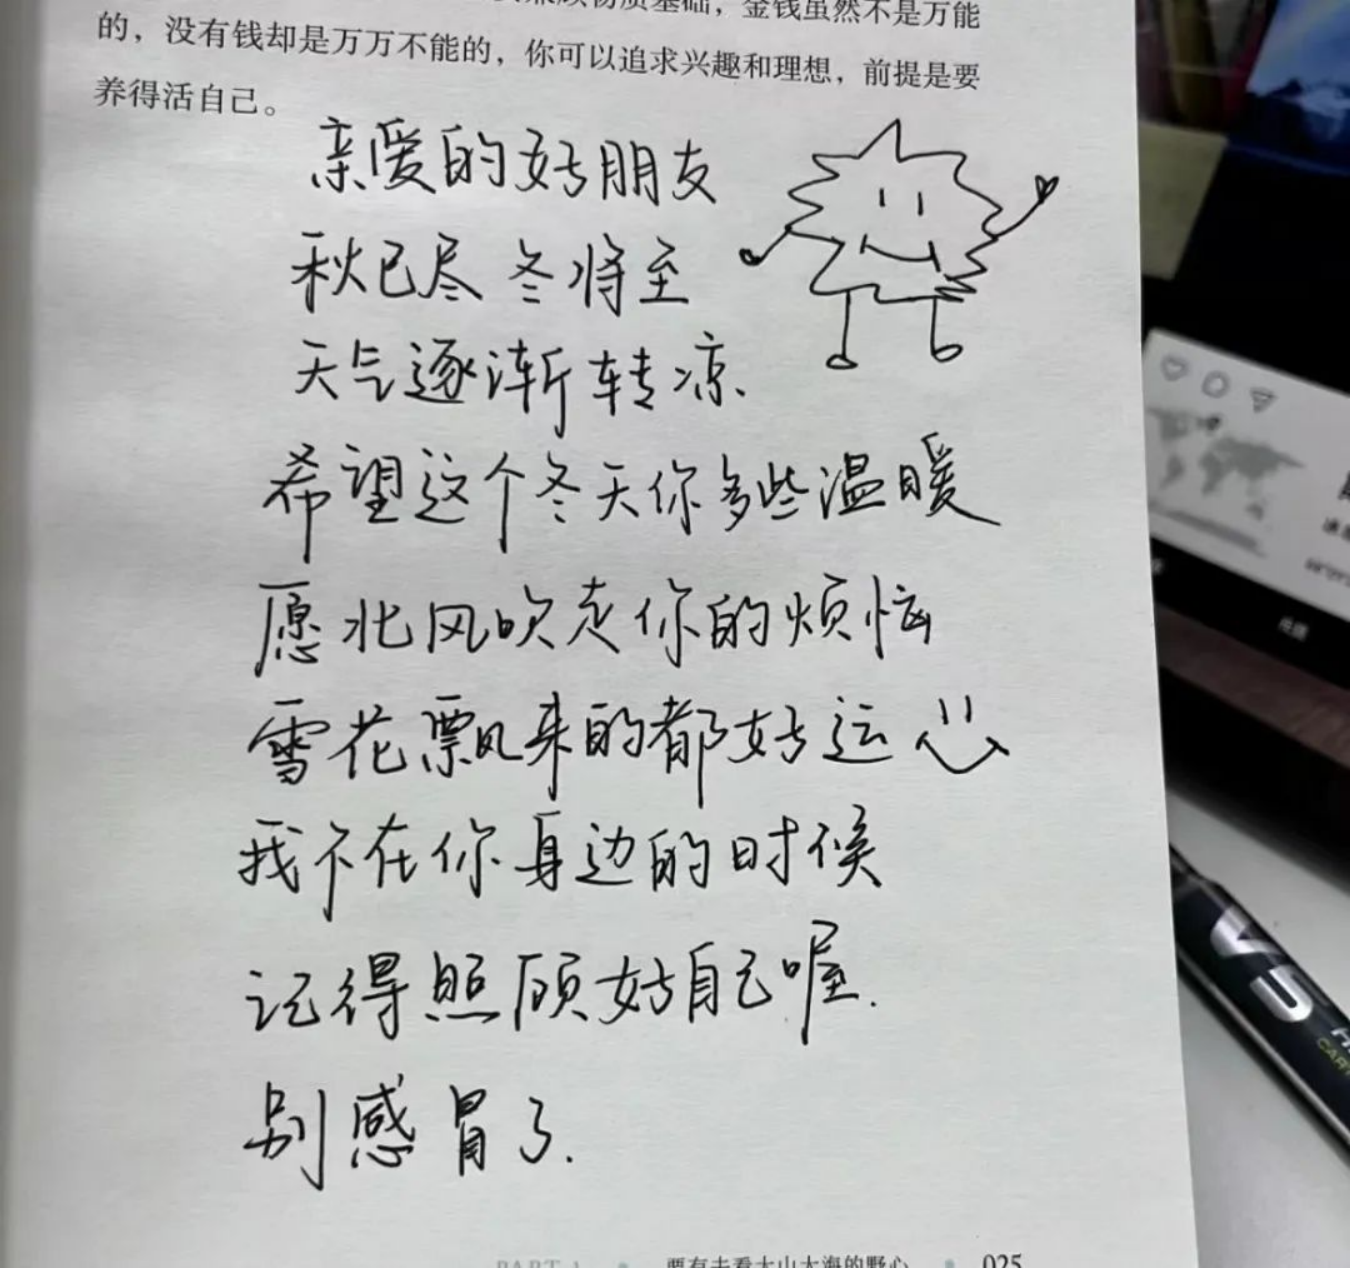 基础，金钱虽然不是万能
的，没有钱却是万万不能的，你可以追求兴趣和理想，前提是要
养得活自己。
亲爱的好朋友
秋已尽 冬将至
天气逐渐转凉.
希望这个冬天你多些温暖
愿北风吹走你的烦恼
雪花飘来的都好运
我不在你身边的时候
记得照顾好自己喔.
别感冒了.
PART 1 要有去看大山大海的野心 025
V5